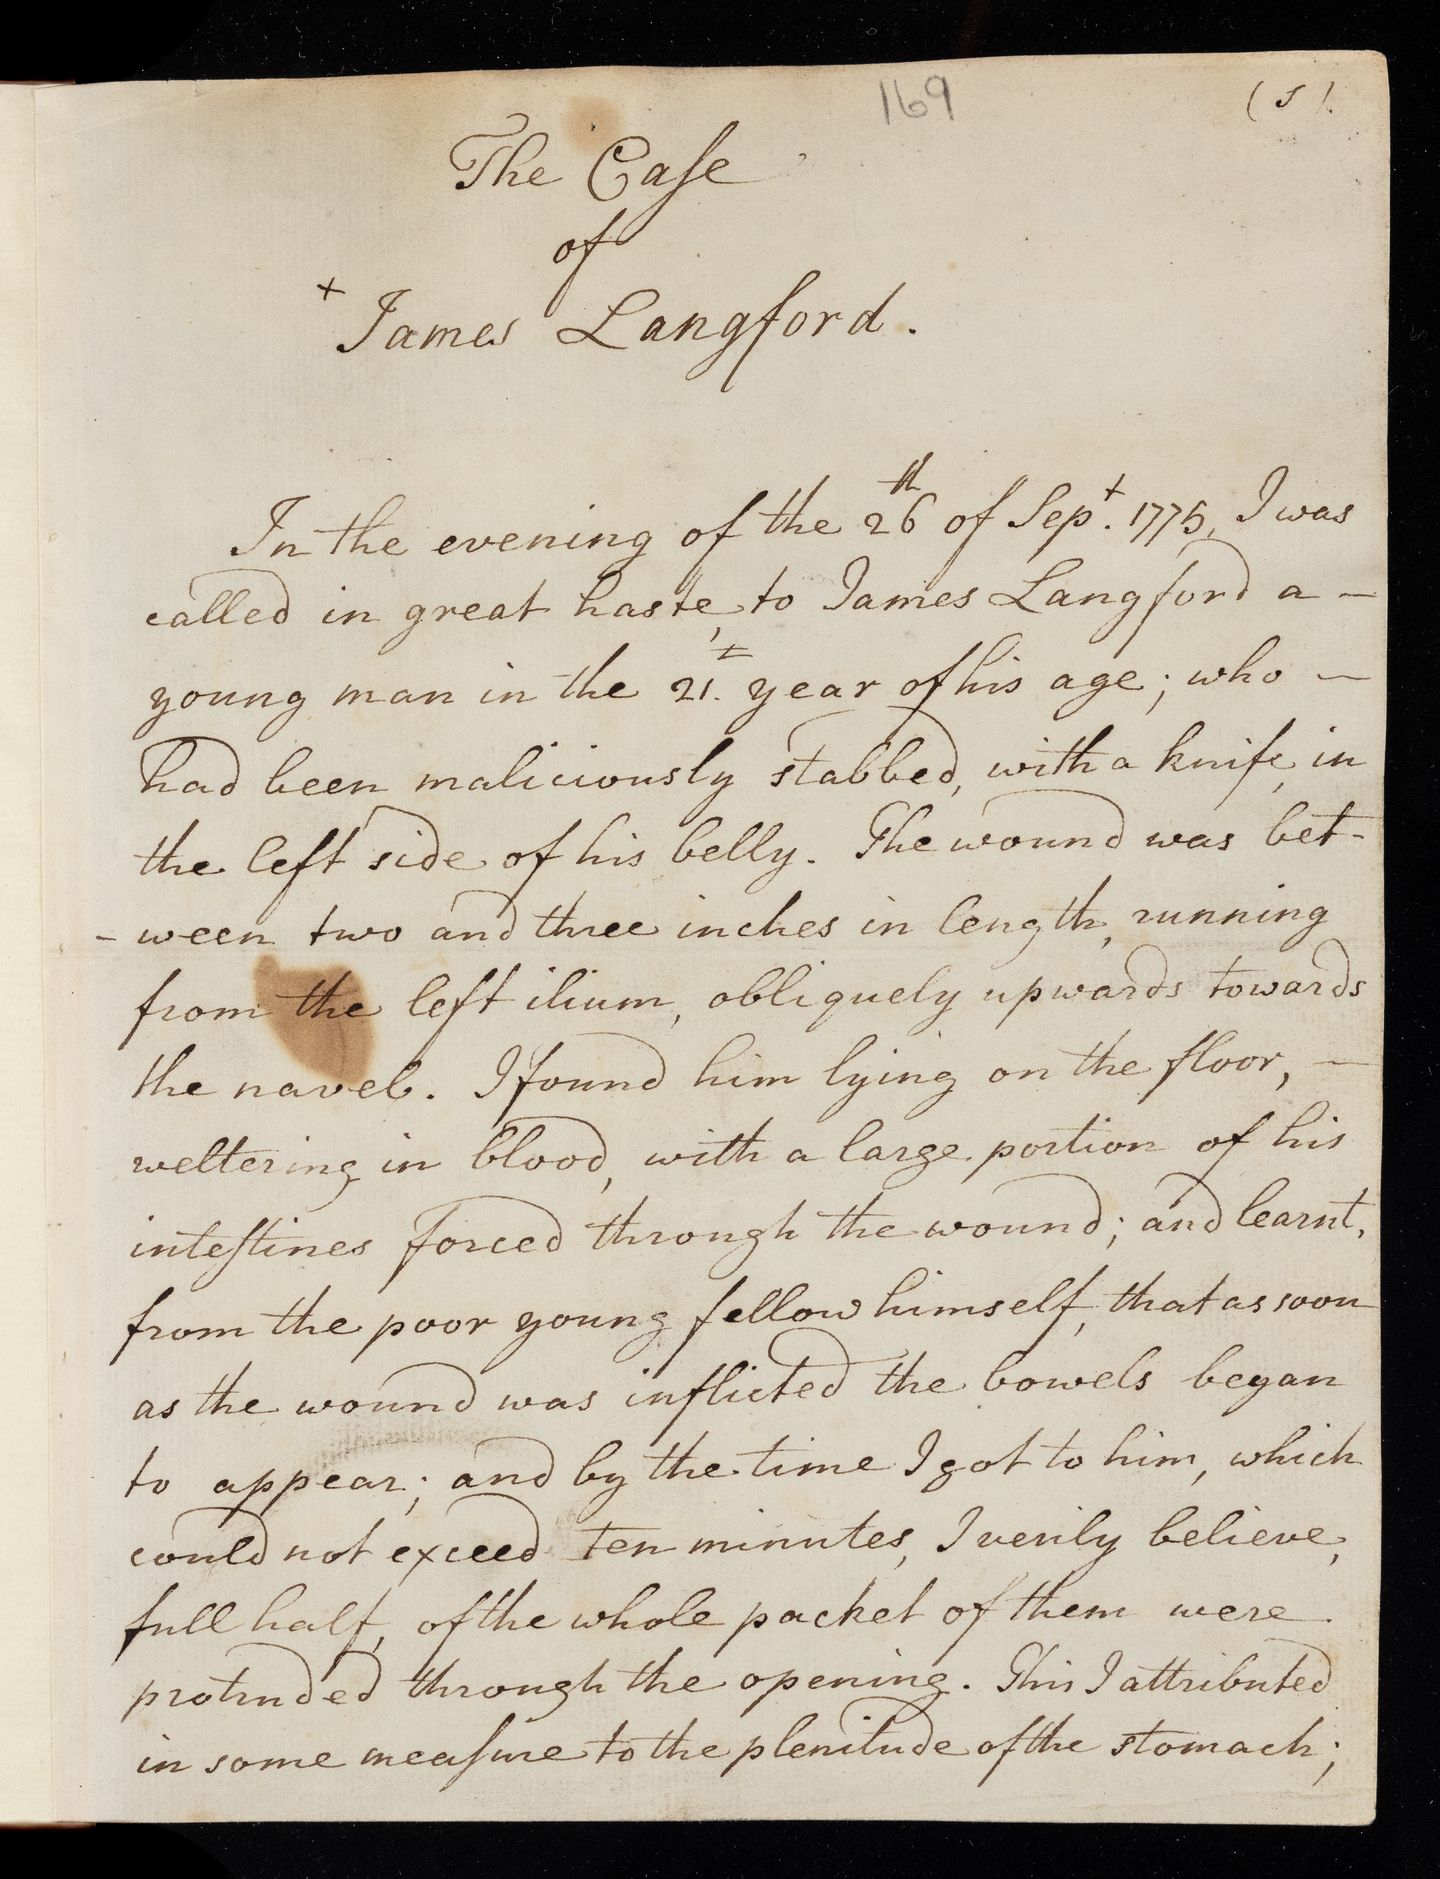 169
(5).
The Caſe
of
+ James Langford.
In the evening of the 26th of Sept. 1775, I was
called in great haste, to James Langford a —
young man in the 21.st year of his age; who —
had been maliciously stabbed, with a knife, in
the left side of his belly. The wound was bet-
- ween two and three inches in length, running
from the left ilium, obliquely upwards towards
the navel. I found him lying on the floor, —
weltering in blood, with a large portion of his
inteſtines forced through the wound; and learnt,
from the poor young fellow himself, that as soon
as the wound was inflicted the bowels began
to appear; and by the time I got to him, which
could not exceed ten minutes, I verily believe,
full half, of the whole packet of them were
protruded through the opening. This I attributed
in some meaſure to the plenitude of the stomach;